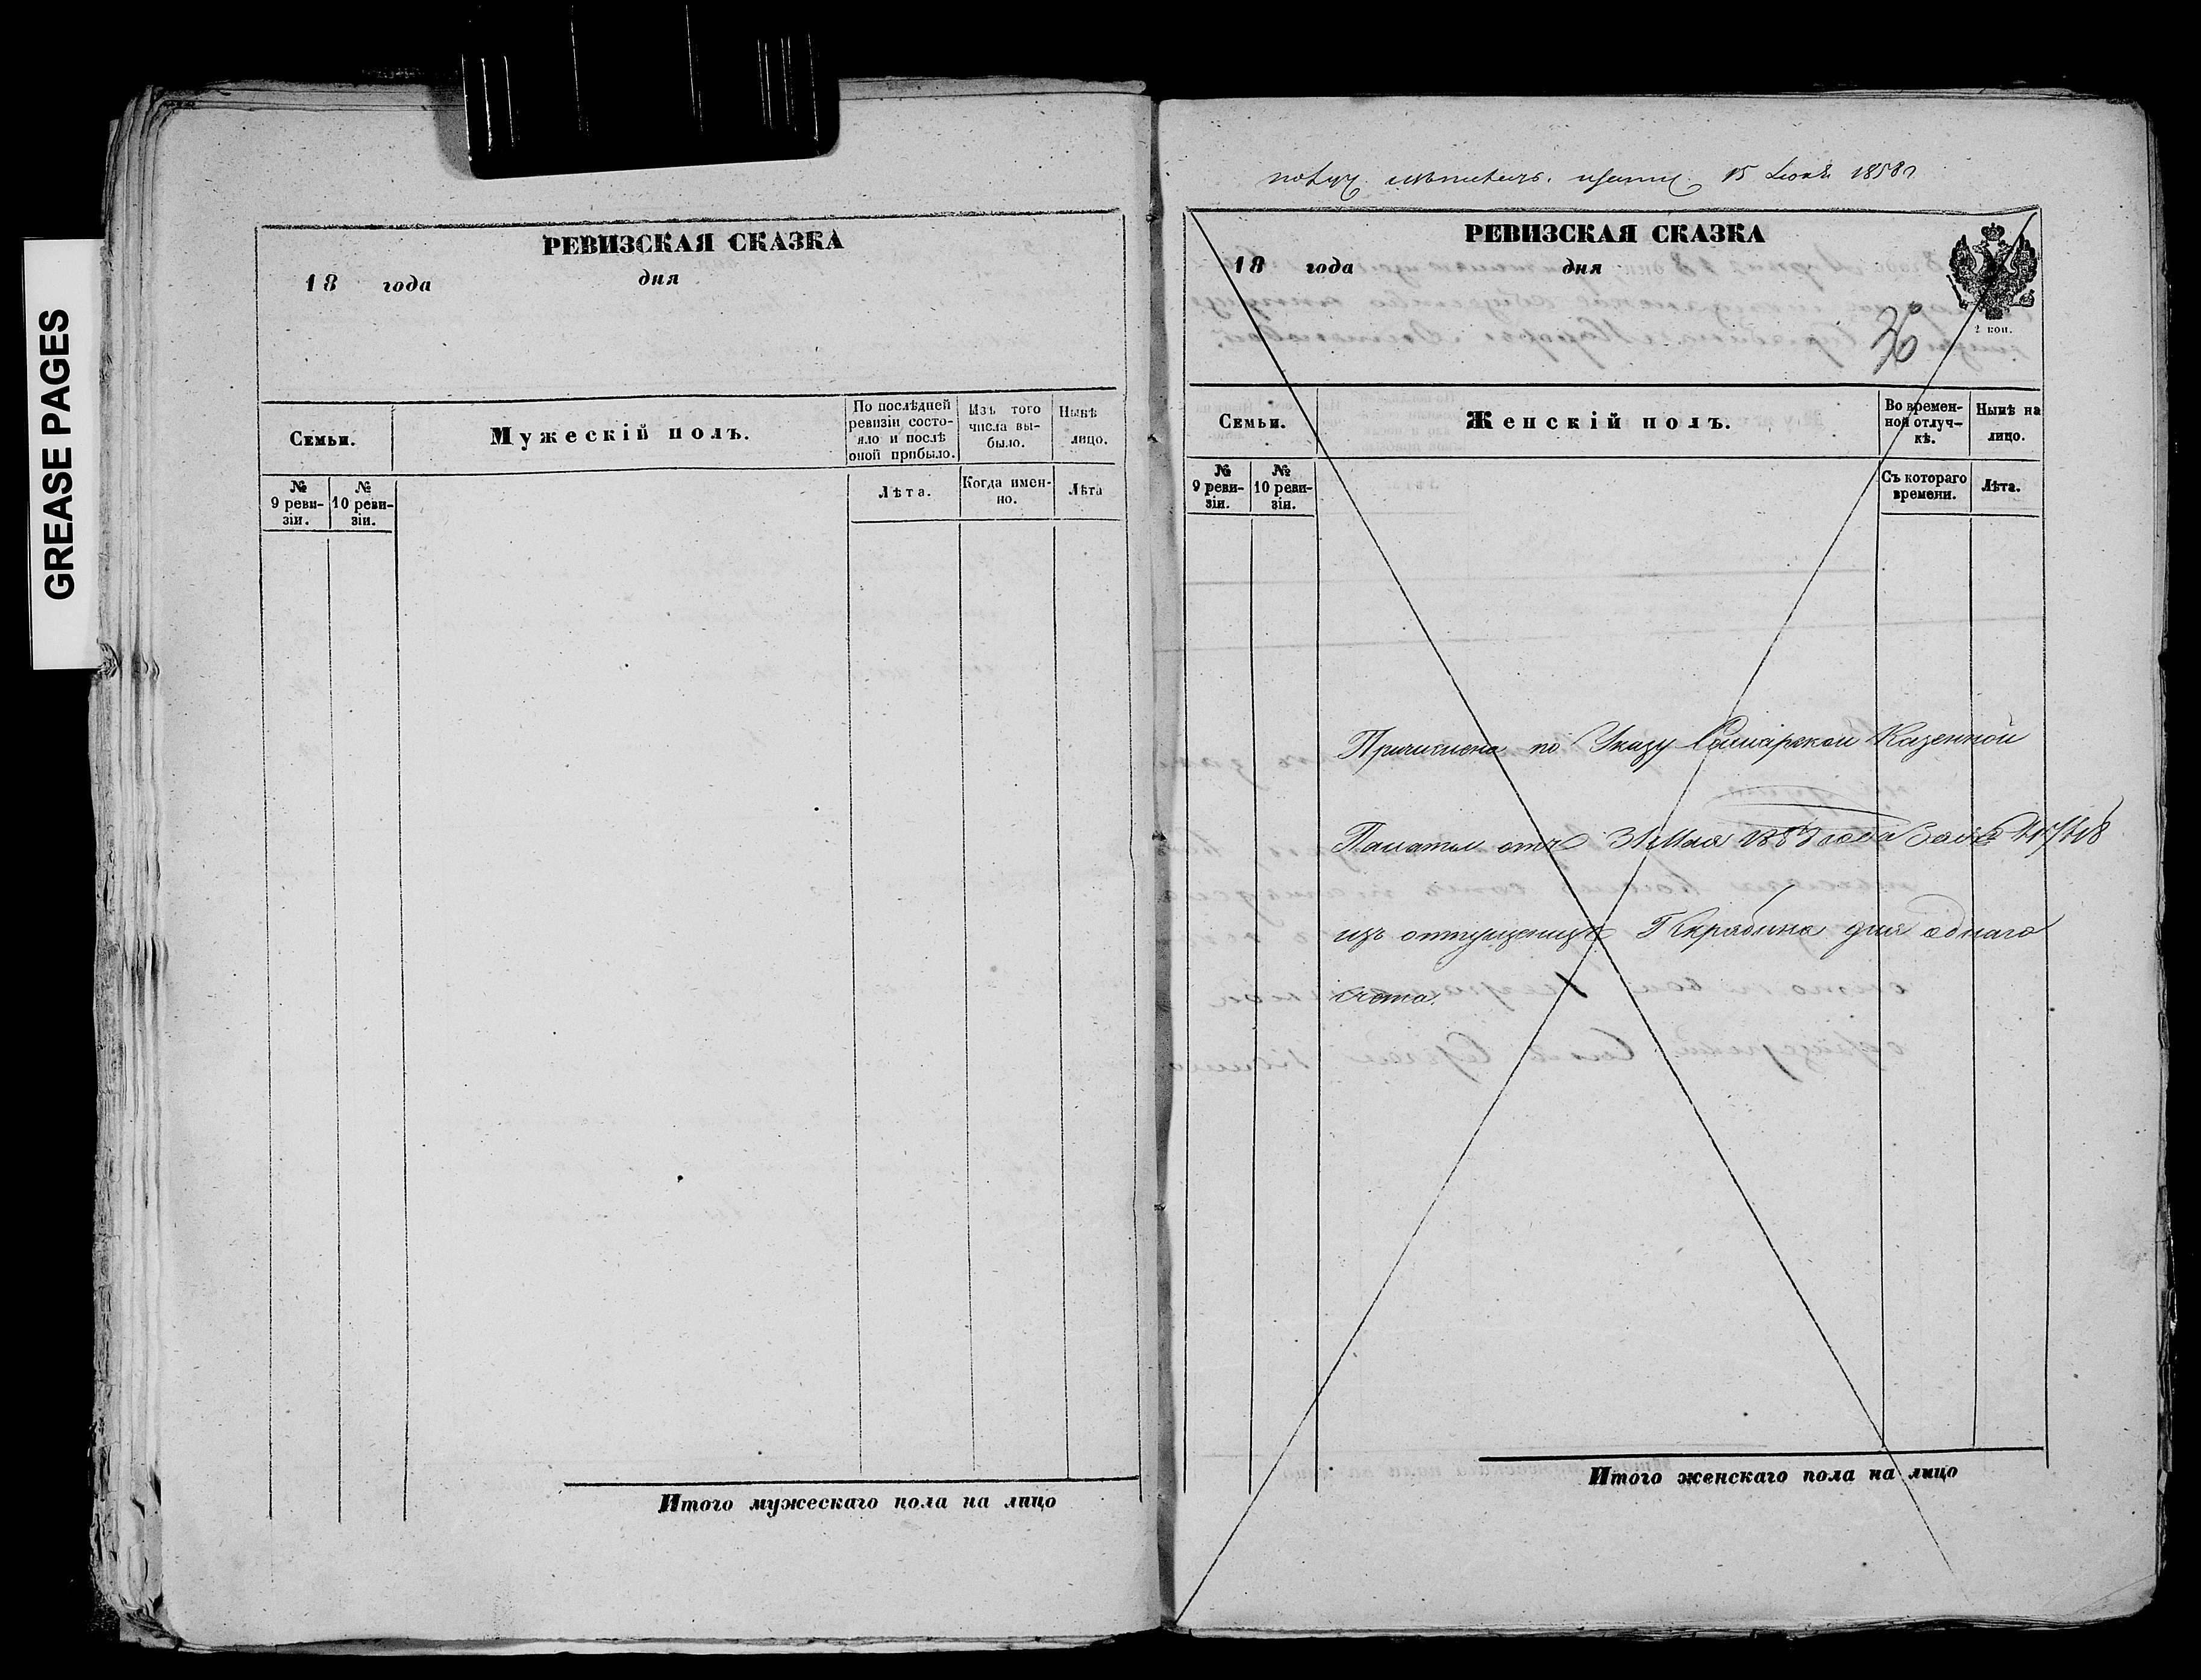 GREASE PAGES
РЕВИЗСКАЯ СКАЗКА
18 года дня
Семьи.
Мужескій полъ.
По послѣдней ревизіи состо-
яло и послѣ
оной прибыло.
Изъ того
числа вы-
было.
Нынѣ
лицо.
№
9 реви-
зіи.
№
10 реви-
зіи.
Лѣта.
Когда имен-
но.
Лѣта
Итого мужескаго пола на лицо
15 1858
РЕВИЗСКАЯ СКАЗКА
18 года дня
2 коп.
36
Семьи.
Женскій полъ.
Во времен-
ной отлуч-
кѣ.
Нынѣ на
лицо.
№
9 реви-
зіи.
№
10 реви-
зіи.
Съ котораго
времени.
Лѣта.
Причислена по Указу Самарской Казенной
Палаты отъ 31 Мая года за №
изъ отпущениц Г Скрябина для однаго
счета.
Итого женскаго пола на лицо